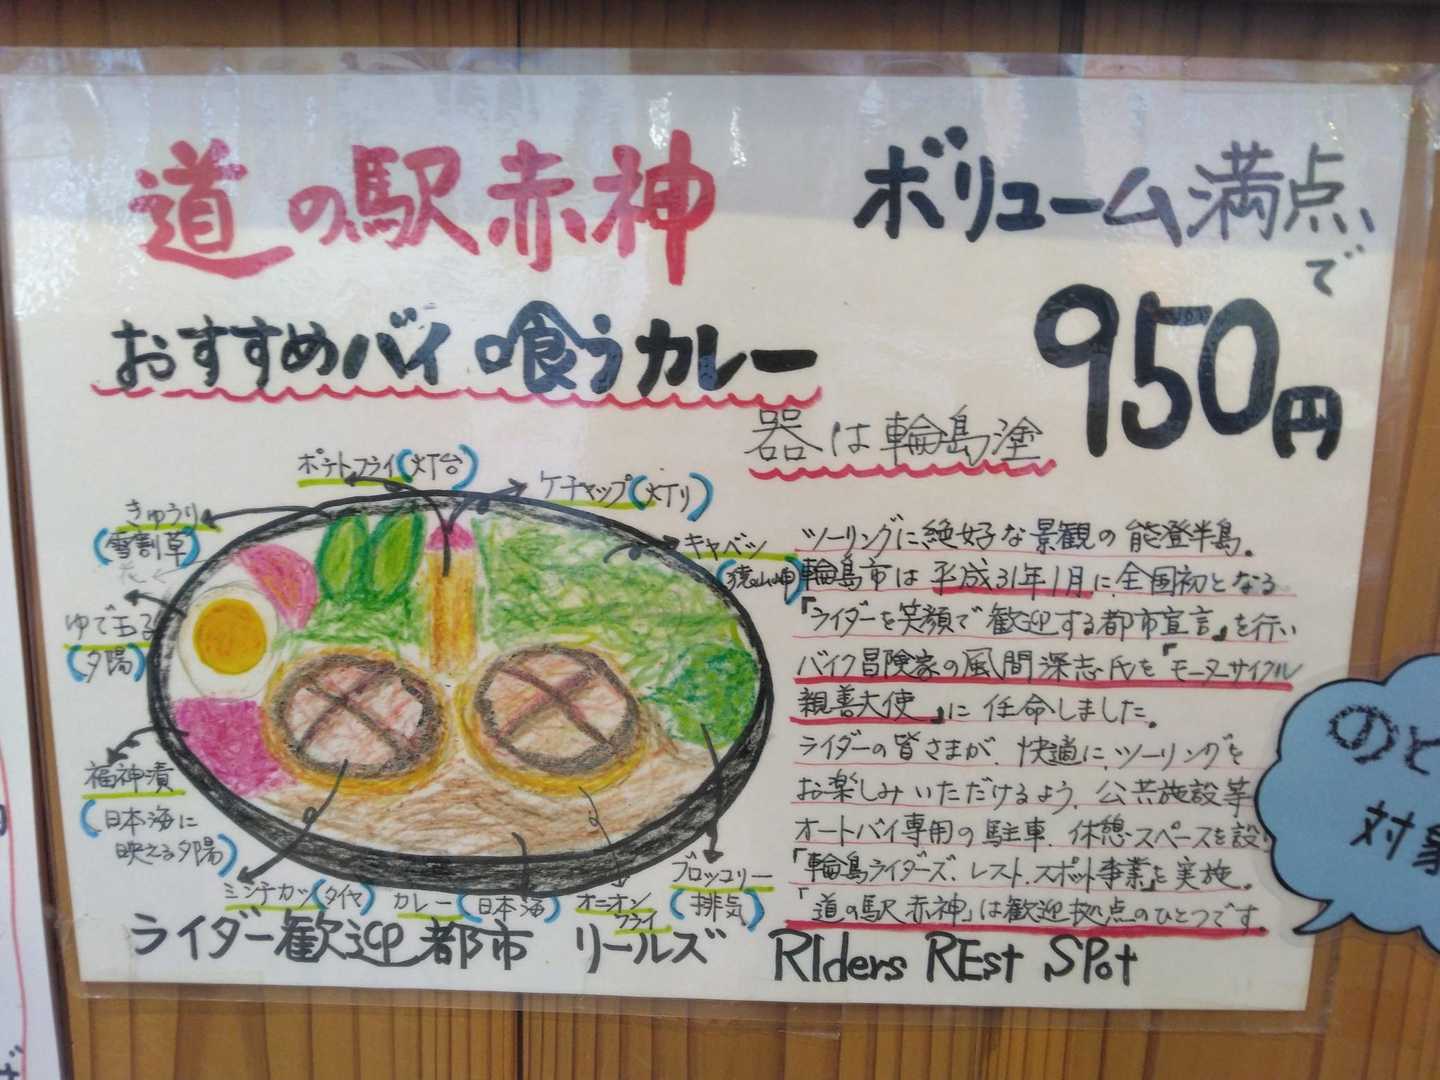 道の駅赤神
ボリューム満点
で
950円
おすすめバイ喰うカレー
器は輪島塗
ポテトフライ(灯台)
ケチャップ(灯り)
きゅうり
(雪割草)
キャベツ
(猿山岬)
ゆで玉子
(夕陽)
福神漬
(日本海に
映える夕陽)
ミンチカツ(タイヤ)
カレー(日本海)
オニオン
フライ
ブロッコリー
(排気)
ツーリングに絶好な景観の能登半島。
輪島市は平成31年1月に全国初となる
『ライダーを笑顔で歓迎する都市宣言』を行い
バイク冒険家の風間深志氏を『モーターサイクル
親善大使』に任命しました。
ライダーの皆さまが、快適にツーリングを
お楽しみいただけるよう、公共施設等
オートバイ専用の駐車、休憩スペースを設
「輪島ライダーズ、レスト、スポット事業」を実施。
「道の駅赤神」は歓迎拠点のひとつです。
ライダー歓迎都市 リールズ RIders REst SPot
のと
対象